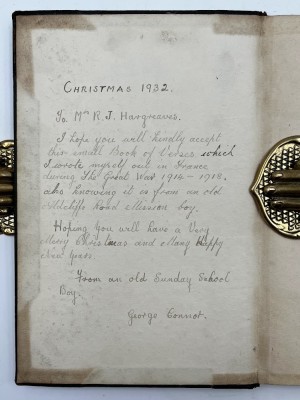 CHRISTMAS 1932.
To Mr R. J. Hargreeves.
I hope you will kindly accept
this small Book of Verses which
I wrote myself out in France
during The Great War 1914 - 1918.
also knowing it is from an old
Road Mission boy.
Hoping you will have a Very
Merry Christmas and Many Happy
New Years.
From an old Sunday School
Boy.
George Connor.